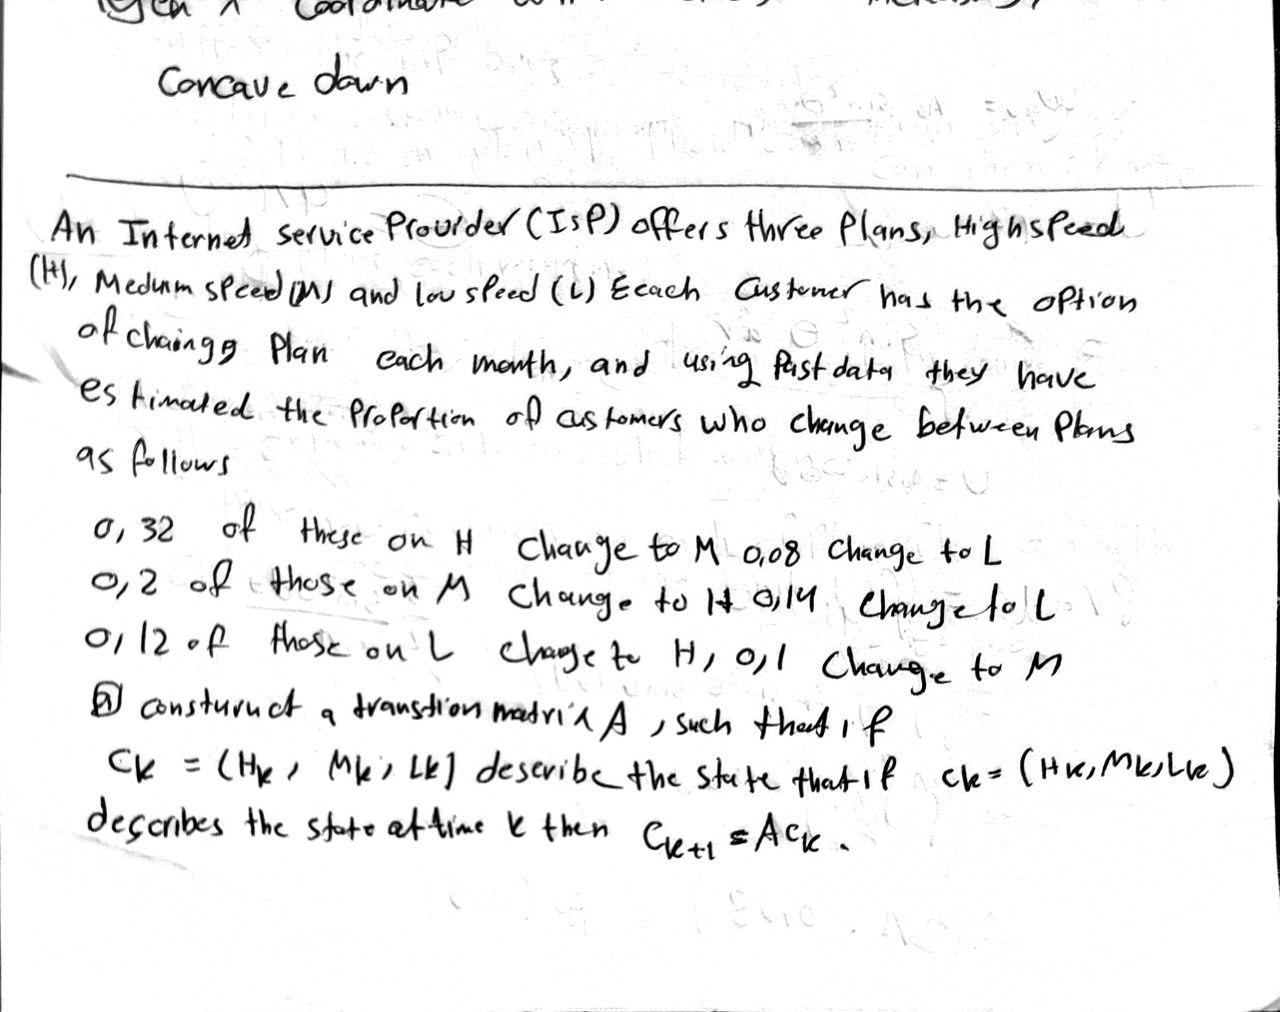 Concave down
An Internet service Provider (ISP) offers three Plans, High speed
(H), Medium speed (M) and low speed (L) Eeach Customer has the option
of chaingg Plan each month, and using Past data they have
estimated the Proportion of customers who change between Plans
as follows
0,32 of these on H Change to M 0,08 Change to L
0,2 of those on M Change to H 0,14 Change to L
0,12 of those on L change to H, 0,1 Change to M
a consturuct a transtion matrix A, such that if
Ck = (Hk, Mk, Lk] describe the state that if ck = (Hk, Mk, Lk)
describes the state at time k then Ck+1 = Ack.